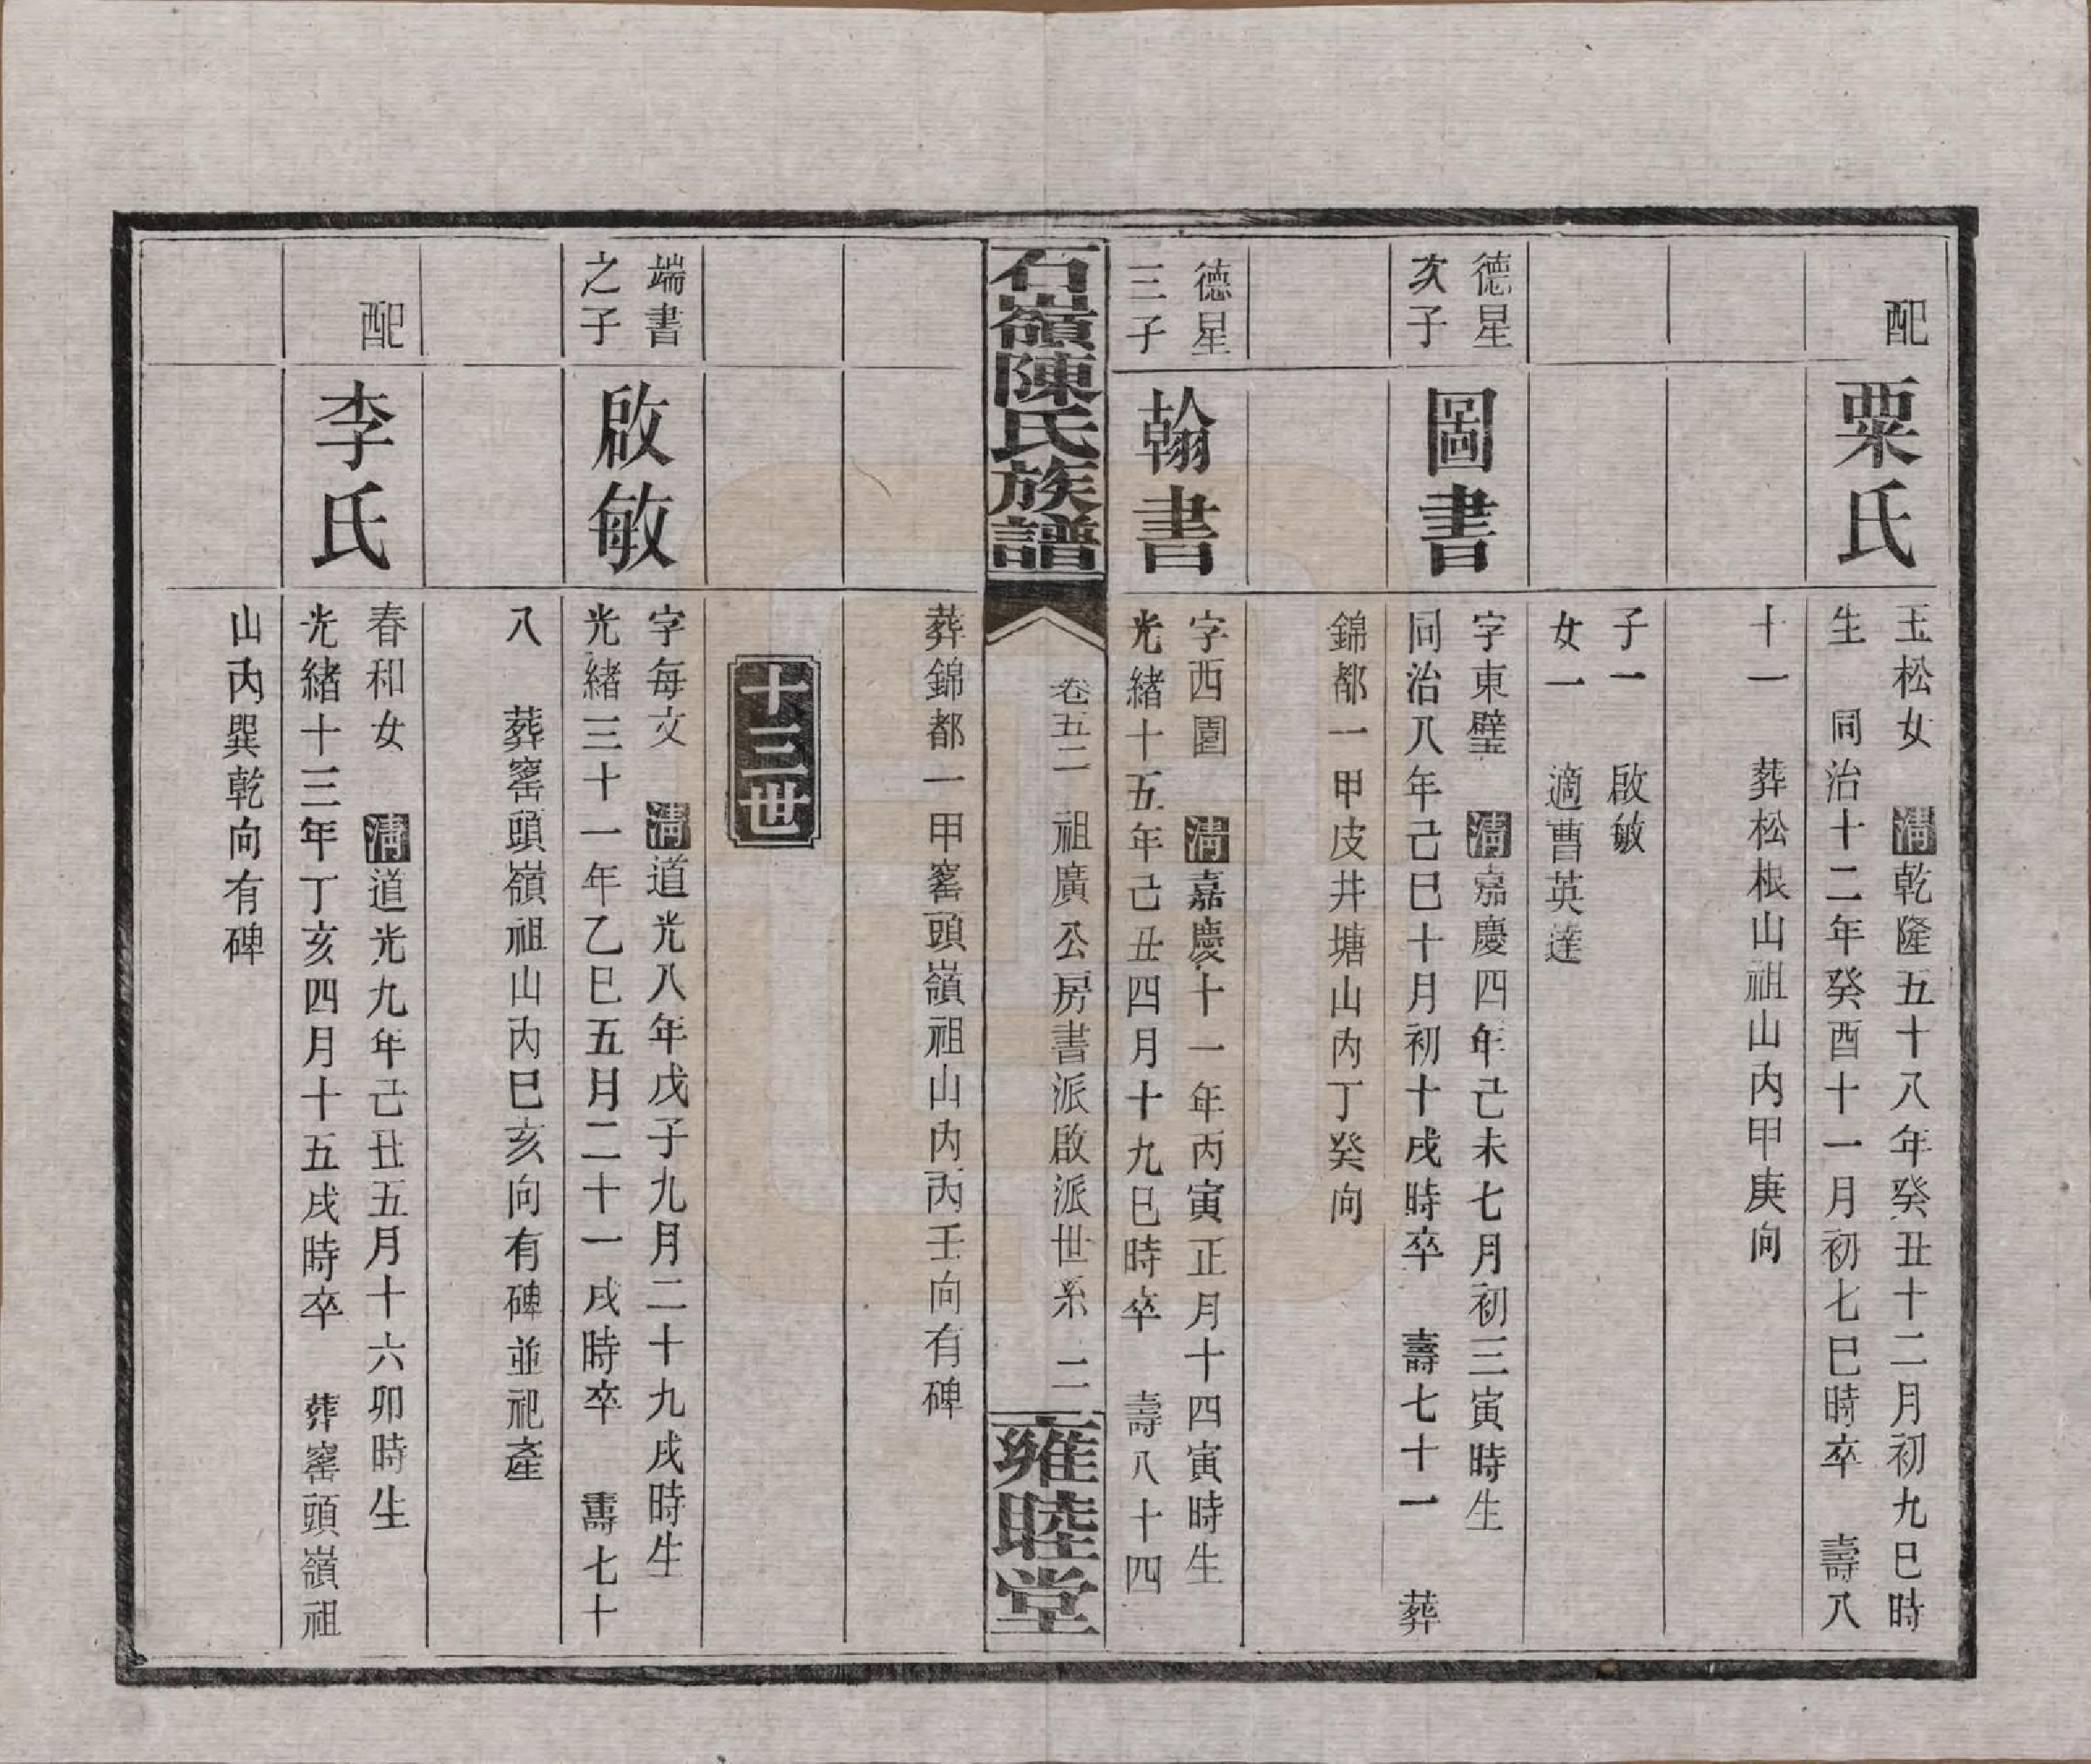 配
粟氏
玉松女　清乾隆五十八年癸丑十二月初九巳時
生　同治十二年癸酉十一月初七巳時卒　壽八
十一　葬松根山祖山内甲庚向
子一　啟敏
女一　適曹英達
德星
次子
圖書
字東璧　清嘉慶四年己未七月初三寅時生
同治八年己巳十月初十戌時卒　壽七十一　葬
錦都一甲皮井塘山内丁癸向
德星
三子
翰書
字西園　清嘉慶十一年丙寅正月十四寅時生
光緒十五年己丑四月十九巳時卒　壽八十四
石嶺陳氏族譜
卷五二　祖廣公房書派啟派世系　二
雍睦堂
葬錦都一甲窰頭嶺祖山内丙壬向有碑
十三世
端書
之子
啟敏
字每文　清道光八年戊子九月二十九戌時生
光緒三十一年乙巳五月二十一戌時卒　壽七十
八　葬窰頭嶺祖山内巳亥向有碑並祀產
配
李氏
春和女　清道光九年己丑五月十六卯時生
光緒十三年丁亥四月十五戌時卒　葬窰頭嶺祖
山内巽乾向有碑